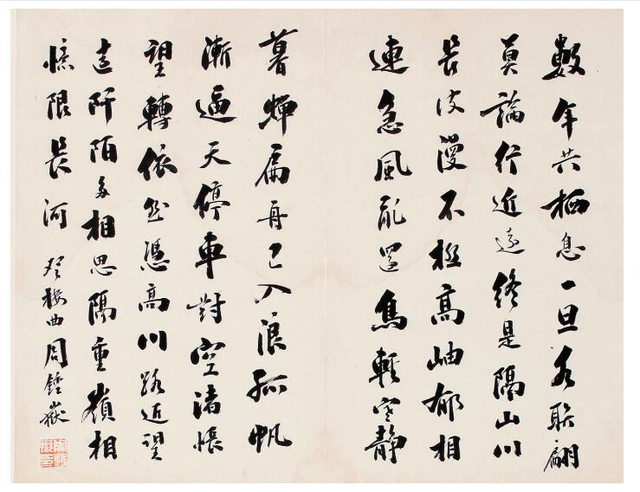 數年共栖息一旦各聯翩
莫論行近遠終是隔山川
長波漫不極高岫郁相
連急風亂還鳥輕寒靜
暮蟬扁舟已入浪孤帆
漸逼天停車對空渚悵
望轉依然憑高川路近望
遠阡陌多相思隔重嶺相
憶限長河 周鍾嶽